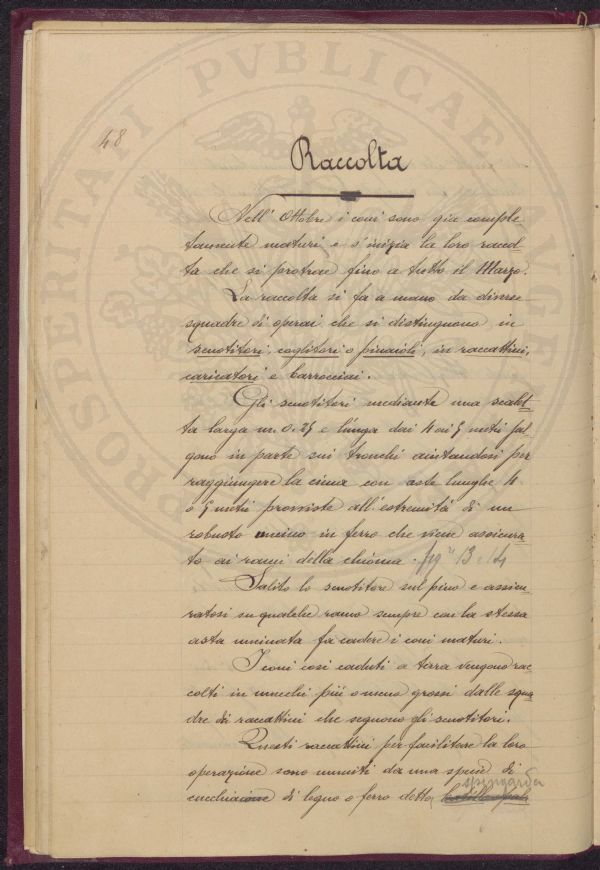 48
Raccolta
Nell' Ottobre i coni sono già comple
tamente maturi e s'inizia la loro raccol-
ta che si protrae fino a tutto il Marzo.
La raccolta si fa a mano da diverse
squadre di operai che si distinguono in
scuotitori, coglitori o pinaioli, in raccattini,
caricatori e barrocciai.
Gli scuotitori mediante una scalet-
ta larga m. 0.25 e lunga dai 4 ai 5 metri sal-
gono in parte sui tronchi aiutandosi per
raggiungere la cima con aste lunghe 4
o 5 metri provviste all'estremità di un
robusto uncino in ferro che viene assicura-
to ai rami della chioma. fig 13 e 14
Salito lo scuotitore sul pino e assicu-
ratosi su qualche ramo sempre con la stessa
asta uncinata fa cadere i coni maturi.
I coni così caduti a terra vengono rac
colti in mucchi più o meno grossi dalle squa
dre di raccattini che seguono gli scuotitori.
Questi raccattini per facilitare la loro
operazione sono muniti da una specie di
spingarda
cucchiaione di legno o ferro detto